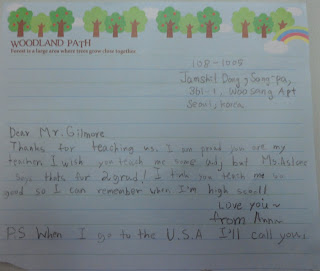 WOODLAND PATH
Forest is a large area where trees grow close together.
108-1005
Jamshil Dong, Song-pa,
361-1, Woosung Apt
Seoul, Korea
Dear Mr. Gilmore
Thanks for teaching us. I am proud you are my
teacher. I wish you teach me some adj but Ms. Astore
says thats for 2grad! I think you teach me so
good so I can remember when I'm high scholl
Love you~
from Anna
P.S When I go to the U.S.A I'll call you: